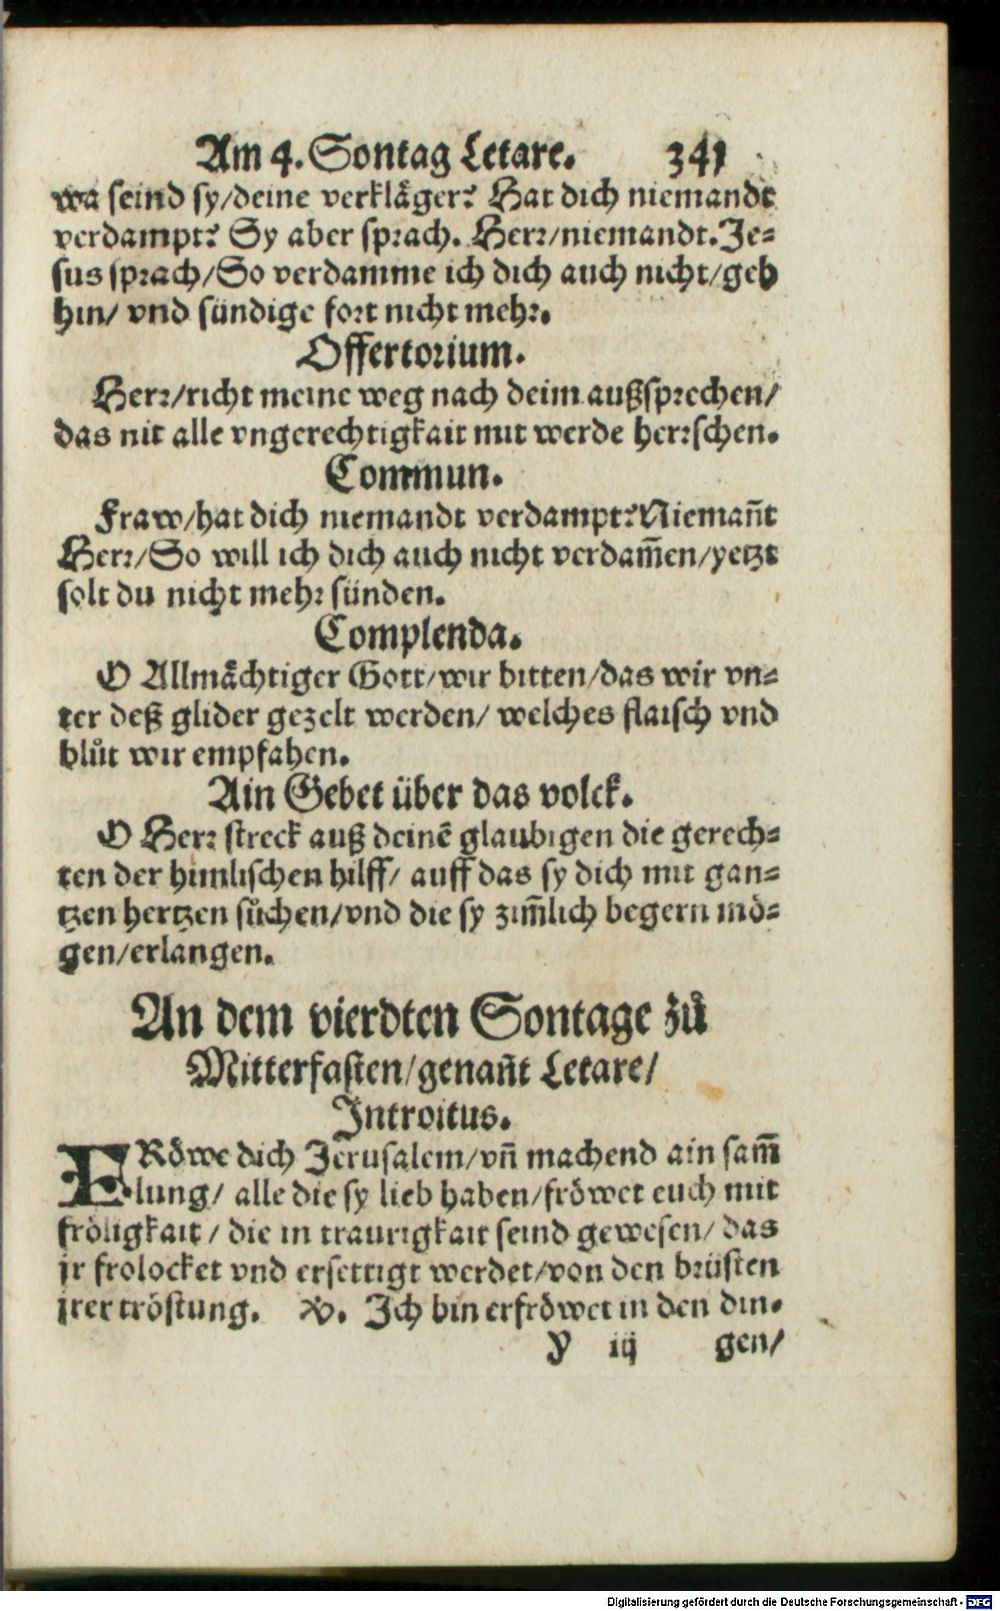 Am 4. Sontag Letare. 341
wa seind sy/deine verkläger? Hat dich niemandt
verdampt? Sy aber sprach. Herr/niemandt. Je-
sus sprach/So verdamme ich dich auch nicht/geh
hin/ vnd sündige fort nicht mehr.
Offertorium.
Herr/richt meine weg nach deim außsprechen/
das nit alle vngerechtigkait mit werde herrschen.
Commun.
Fraw/hat dich niemandt verdampt? Niemañt
Herr/So will ich dich auch nicht verdam̃en/yetzt
solt du nicht mehr sünden.
Complenda.
O Allmächtiger Gott/wir bitten/das wir vn-
ter deß glider gezelt werden/ welches flaisch vnd
blůt wir empfahen.
Ain Gebet über das volck.
O Herr streck auß deinẽ glaubigen die gerech-
ten der himlischen hilff/ auff das sy dich mit gan-
tzen hertzen sůchen/vnd die sy zim̃lich begern mö-
gen/erlangen.
An dem vierdten Sontage zů
Mitterfasten/genañt Letare/
Introitus.
FRöwe dich Jerusalem/vñ machend ain sam̃
lung/ alle die sy lieb haben/fröwet euch mit
fröligkait/ die in traurigkait seind gewesen/ das
jr frolocket vnd ersettigt werdet/von den brüsten
jrer tröstung. ℣. Ich bin erfröwet in den din-
y iij gen/
Digitalisierung gefördert durch die Deutsche Forschungsgemeinschaft - DFG